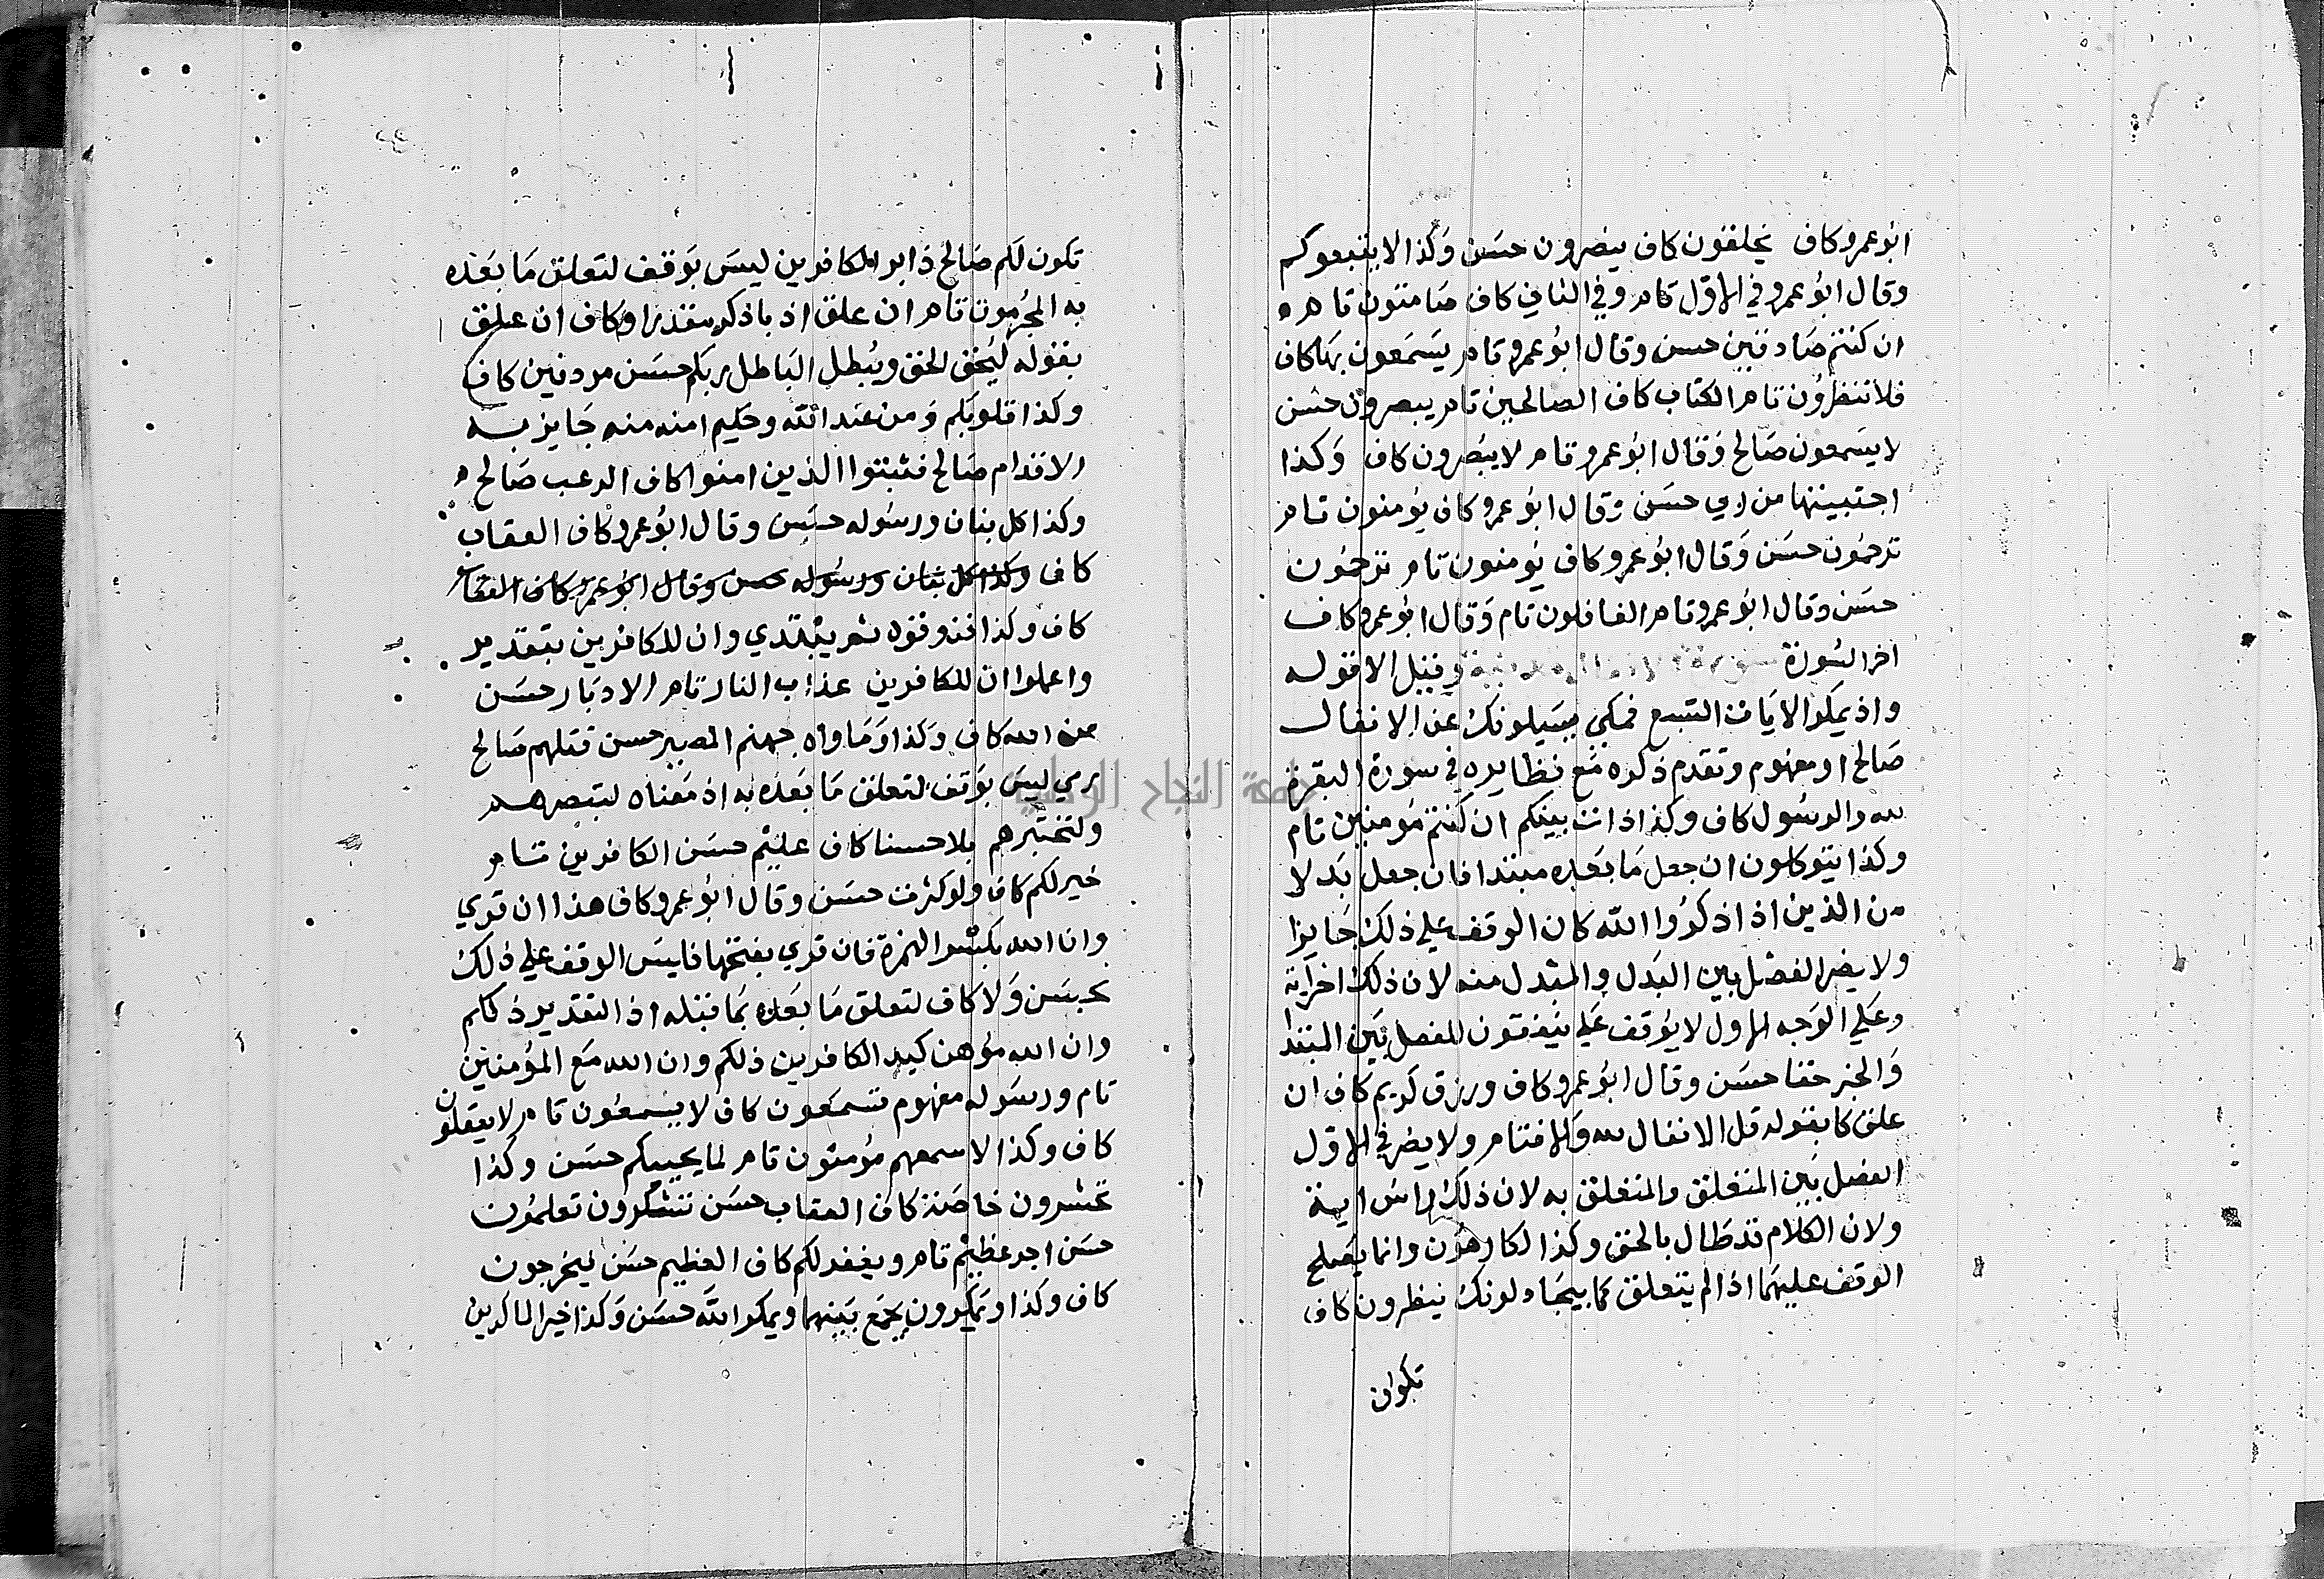 ابو عمرو كاف يخلقون كاف ينصرون حسن وكذا لا يتبعوكم
وقال ابو عمرو في الاول تام وفي الثاني كاف صامتون تام
ان كنتم صادقين حسن وقال ابو عمرو تام يسمعون بها كاف
فلا تنظرون تام الكتاب كاف الصالحين تام ينصرون حسن
لا يسمعون صالح وقال ابو عمرو تام لا يبصرون كاف وكذا
اجتبيتها من ربي حسن وقال ابو عمرو كاف يؤمنون تام
ترحمون حسن وقال ابو عمرو كاف يؤمنون تام ترحمون
حسن وقال ابو عمرو تام الغافلون تام وقال ابو عمرو كاف
اخر السورة وقيل الا قوله
واذ يمكر الايات السبع فمكي يسيلونك عن الانفال
صالح او مفهوم وتقدم ذكره مع نظايره في سورة البقرة
لله والرسول كاف وكذا ذات بينكم ان كنتم مؤمنين تام
وكذا يتوكلون ان جعل ما بعده مبتدا فان جعل بدلا
من الذين اذا ذكروا الله كان الوقف علي ذلك جايزا
ولا يضر الفصل بين البدل والمبدل منه لان ذلك اخر اية
وعلي الوجه الاول لا يوقف علي ينفقون للفصل بين المبتدا
والخبر حقا حسن وقال ابو عمرو كاف ورزق كريم كاف ان
علق كما بقوله قل الانفال لله والا فتام ولا يضر في الاول
الفصل بين المتعلق والمتعلق به لان ذلك راس اية
ولان الكلام قد طال بالحق وكذا لكارهون وانما يصلح
الوقف عليهما اذا لم يتعلق كما بيجادلونك ينظرون كاف
تكون
تكون لكم صالح دابر الكافرين ليس بوقف لتعلق ما بعده
به المجرمون تام ان علق اذ باذكر مقدرا وكاف ان علق
بقوله ليحق الحق ويبطل الباطل ربكم حسن مردفين كاف
وكذا قلوبكم ومن عند الله وحكيم امنه منه جايز به
الاقدام صالح فثبتوا الذين امنوا كاف الرعب صالح
وكذا كل بنان ورسوله حسن وقال ابو عمرو كاف العقاب
كاف وكذا كل بنان ورسوله حسن وقال ابو عمرو كاف العقاب
كاف وكذا فذوقوه ثم يبتدي وان للكافرين بتقدير
واعلموا ان للكافرين عذاب النار تام الادبار حسن
من الله كاف وكذا وماواه جهنم المصير حسن قتلهم صالح
رمي ليس بوقف لتعلق ما بعده به اذ معناه ليبصرهم
ولتختبرهم بلا حسنا كاف عليم حسن الكافرين تام
خير لكم كاف ولو كثرت حسن وقال ابو عمرو كاف هذا ان قري
وان الله بكسر الهمزة فان قري بفتحها فليس الوقف علي ذلك
بحسن ولا كاف لتعلق ما بعده بما قبله اذ التقدير ذلكم
وان الله موهن كيد الكافرين ذلكم وان الله مع المؤمنين
تام ورسوله مفهوم تسمعون كاف لا يسمعون تام لا يعقلون
كاف وكذا لاسمعهم مؤمنون تام لما يحييكم حسن وكذا
تحشرون خاصة كاف العقاب حسن تشكرون تعلمون
حسن اجر عظيم تام ويغفر لكم كاف العظيم حسن ليخرجون
كاف وكذا ويمكرون يجمع بينهما ويمكر الله حسن وكذا خير الماكرين
جامعة النجاح الوطنية